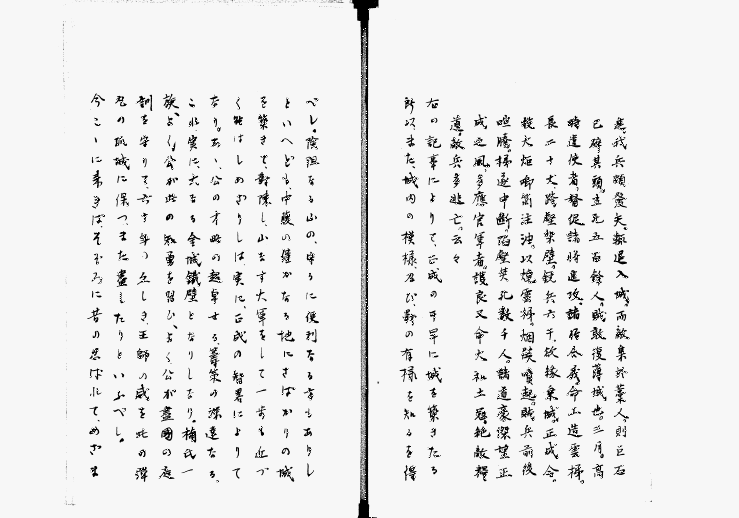 悉我兵頭發矢、輙退入城、而敵集於藁人、則巨石
已碎其頭、立死五百餘人。賊敢復薄城也。三月、高
時遣使者、督促諸將進攻、諸將令、命工造雲梯。
長二十丈跨壑架壁、銳兵六千、欲緣棄城、正成令
投火炬、喞筒注油、以燒雲梯、烟焔噴起、賊兵前後
喧騰、梯遂中斷、陷壑焚死數千人、諸道豪傑望正
成之風、多應官軍者、護良又命大和土寇、絶敵糧
道、敵兵多逃亡、云々
右の記事によりて、正成の千早に城を築きたる
所以、また、城内の模樣、及び、影の有樣を知るを得
べし。險阻なる山の、守るに便利なる方もありし
といへども、中腹の僅かなる地にさばかりの城
を築きて、對陣し、山なす大軍をして一歩も近づ
く能はしめざりしは、実に、正成の智略によりて
なり。あゝ、公の才略の超卓せる、籌策の深遠なる、
これ実に、大なる金城鐵壁となりしなり。楠氏一
族、よく、公が此の知勇を習ひ、よく公が盡國の庭
訓を守りて、六十年の久しき、王師の威を此の澤
邑の孤城に保つ、また盡したりといふべし。
今こゝに来れば、そゞろに昔の忍ばれてめざま